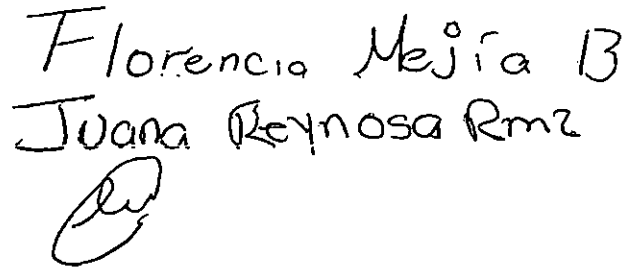 Florencia Mejía B
Juana Reynosa Rmz